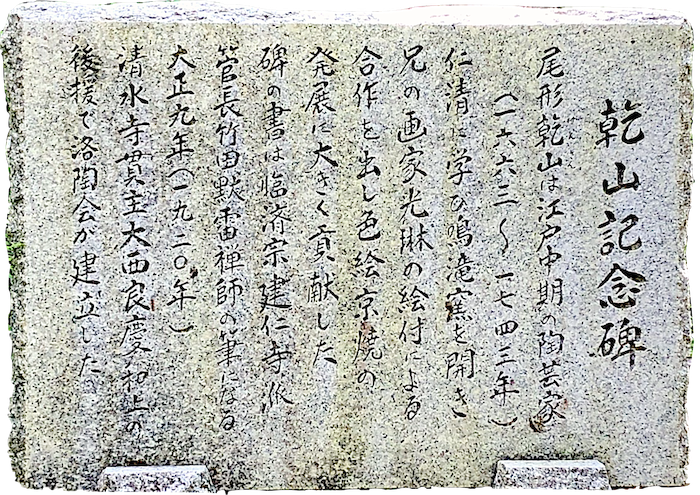 乾山記念碑
尾形乾山は江戸中期の陶芸家
(一六六三〜一七四三年)
仁清に学び鳴滝窯を開き
兄の画家光琳の絵付による
合作を出し色絵京焼の
発展に大きく貢献した
碑の書は臨済宗建仁寺派
管長竹田黙雷禅師の筆になる
大正九年(一九二〇年)
清水寺貫主大西良慶和上の
後援で洛陶会が建立した